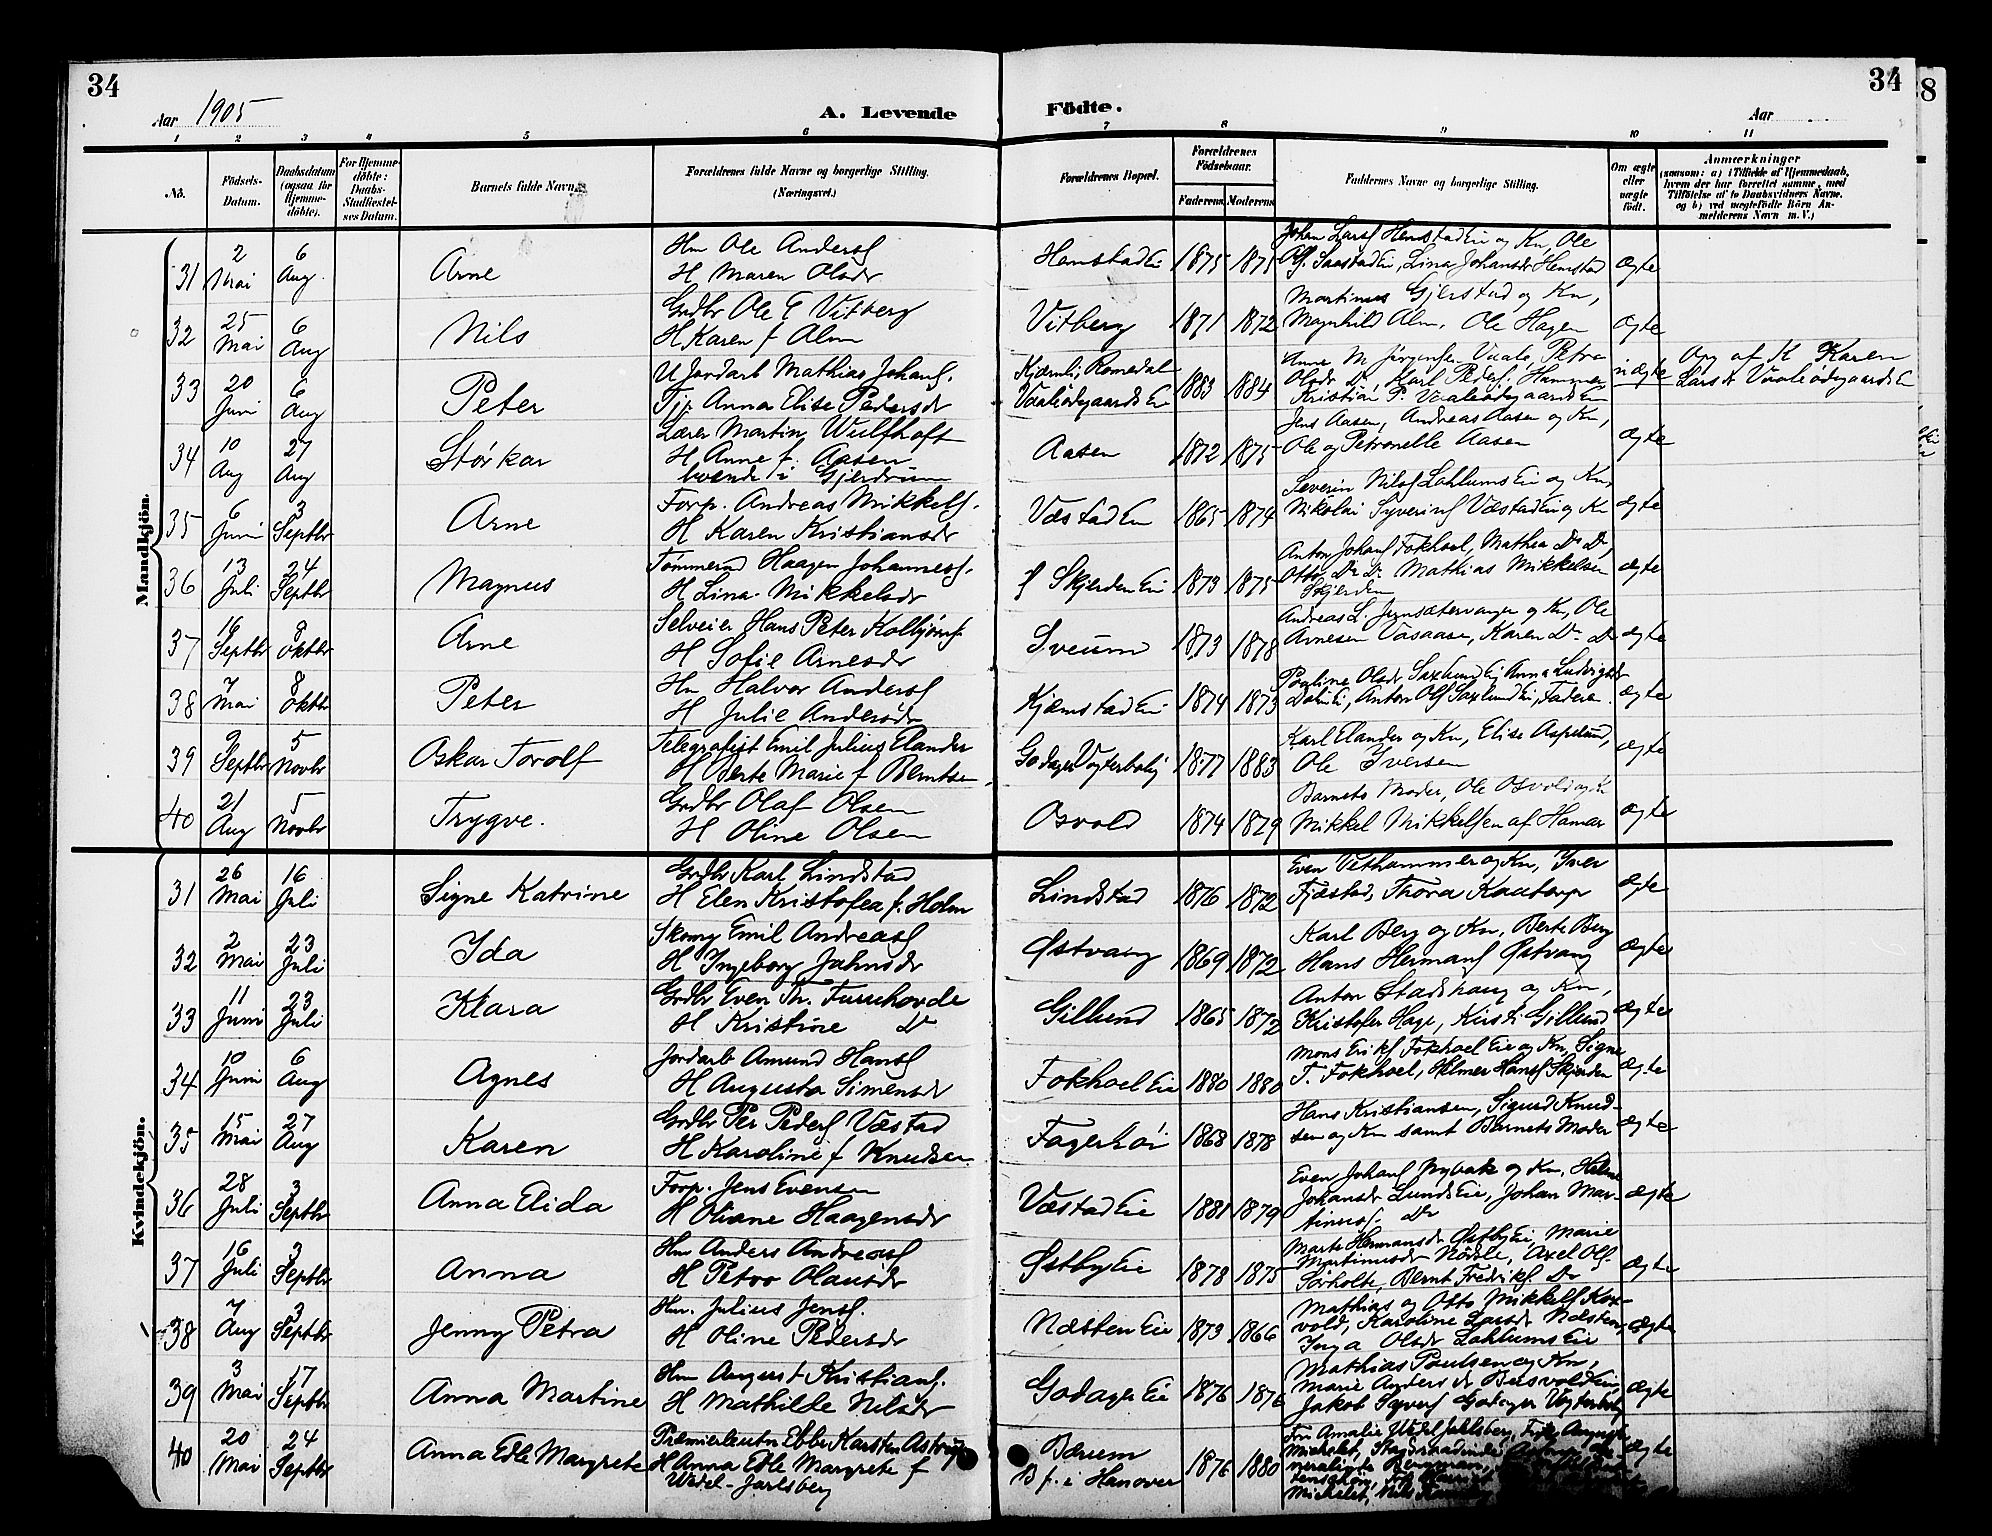 34
34
8
Aar 1905
A. Levende
Födte.
Aar
1 2 3 4 5 6 7 8 9 10 11
No.
Födsels-Datum.
Daabsdatum (ogsaa for Hjemme-döbte).
For Hjemme-döbte: Daabs-Stadfæstel-ses Datum.
Barnets fulde Navn.
Forældrenes fulde Navne og borgerlige Stilling. (Næringsvei.)
Forældrenes Bopæl.
Forældrenes Födselsaar.
Faderens. Moderens.
Faddernes Navne og borgerlige Stilling.
Om ægte eller uægte født.
Anmærkninger
(saasom: a) i Tilfælde af Hjemmedaab, hvem der har forrettet samme, med Tilföielse af to Daabsvidners Navne, og b) ved uægtefödte Börn An-melderens Navn m. V.)
Mandkjön.
31 2 Mai 6 Aug. Arne Hm Ole Anders H Maren Olsdr Hemstad Ei 1875 1875 Johan Lars Hemstad Ei og Kn, Ole Saastad Ei, Lina Johansdr Hemstad ægte
32 25 Mai 6 Aug Nils Grdbr Ole E Vitberg H Karen f Alm Vitberg 1871 1872 Martinus Gjerstad og Kn, Magnhild Alm, Ole Hagen ægte
33 20 Juni 6 Aug Peter U Jordarb Mathias Johans. Tjp. Anna Elise Pedersdr Kjærnli, Romedal Vaaleødegaards Ei 1883 1884 Anne M. Jørgensdr Vaale, Petra Olsdr Do, Karl Peders. Hammer, Kristian P. Vaaleødegaards Ei uægte Opg af K Karen Larsdr Vaaleødegaards Ei
34 10 Aug 27 Aug Størkar Lærer Martin Wulfhoft H Anne f. Aasen boende i Gjerdrum Aasen 1872 1875 Jens Aasen, Andreas Aasen og Kn, Ole og Petronelle Aasen ægte
35 6 Juni 3 Septbr Arne Forp. Andreas Mikkels. H Karen Kristiansdr Væstad Ei 1865 1874 Severin Nils Lahlums Ei og Kn, Nikolai Syverins Væstad Ei og Kn ægte
36 13 Juli 24 Septbr Magnus Tømmermd Haagen Johannes. H Lina Mikkelsdr Skjerden Ei 1873 1875 Anton Johans Fokhoel, Mathea Do Do, Otto Do Do Mathias Mikkelsen Skjerden ægte
37 16 Septbr 8 Oktbr Arne Selveier Hans Peter Kolbjørns. H Sofie Arnesdr Sveum 1873 1878 Andreas L. Jernsætervangen og Kn, Ole Arnesen Vasaasen, Karen Do Do ægte
38 7 Mai 8 Oktbr Peter Hm Halvor Anders H Julie Andersdr Kjæmstad Ei 1874 1873 Pauline Olsdr Saxlund Ei, Anna Ludvigsdr Dalm Ei, Anton Ols Saxlund Ei, Faderen ægte
39 9 Septbr 5 Novbr Oskar Torolf Telegrafist Emil Julius Elander H Berte Marie f Berntsen Godager Vogterbolig 1877 1883 Karl Elander og Kn, Elise Aspelund, Ole Iversen ægte
40 21 Aug 5 Novbr Trygve. Grdbr Olaf Olsen H Oline Olsen Osvold 1874 1879 Barnets Moder, Ole Osvold og K Mikkel Mikkelsen af Hamar ægte
Kvindekjön.
31 26 Mai 16 Juli Signe Katrine Grdbr Karl Lindstad H Elen Kristofea f. Holm Lindstad 1876 1872 Even Vethammer og Kn, Iver Fjæstad, Thora Kaatorp ægte
32 2 Mai 23 Juli Ida Skomg Emil Andreas H Ingeborg Jahnsdr Østvang 1869 1872 Karl Berg og Kn, Berte Berg Hans Hermans Østvang ægte
33 11 Juni 23 Juli Klara Grdbr Even Th. Furuhovde H Kristine Do Gillund 1865 1872 Anton Stadshaug og Kn, Kristofer Hage, Kirsti Gillund ægte
34 10 Juni 6 Aug Agnes Jordarb Amund Hans H Augusta Simensdr Fokhoel Eie 1880 1880 Mons Eriks Fokhoel Eie og Kn, Signe T. Fokhoel, Helmer Hans Skjerden ægte
35 15 Mai 27 Aug Karen Grdbr Per Peders Væstad H Karoline f Knudsen Fagerhøi 1868 1878 Hans Kristiansen, Sigurd Knud-sen og Kn samt Barnets Moder ægte
36 28 Juli 3 Septbr Anna Elida Forp. Jens Evensen H Oliane Haagensdr Væstad Eie 1881 1879 Even Johans Nybak og Kn, Helene Johansdr Lunds Eie, Johan Mar-tinus. Do ægte
37 16 Juli 3 Septbr Anna Hm Anders Andreas H Petra Olausdr Østby Eie 1878 1875 Marte Hermansdr Østby Ei, Marie Martinusdr Nødsle, Axel Ols. Sørholte, Bernt Fredriks. Do ægte
38 7 Aug 3 Septbr Jenny Petra Hm. Julius Jens. H Oline Pedersdr Næsten Eie 1873 1866 Mathias og Otto Mikkels Kor-vold, Karoline Larsdr Næsten, Inga Olsdr Lahlums Eie ægte
39 3 Mai 17 Septbr Anna Martine Hm August Kristians. H Mathilde Nilsdr Godager Eie 1876 1876 Mathias Paulsen og Kn, Marie Andersdr Bersvold Ei, Jakob Syvers Godager Vogterbolig ægte
40 20 Mai 24 Septbr Anna Edle Margrete Premierleutn Ebbe Karsten Astrup H Anna Edle Margrete f Wedel-Jarlsberg Bærum B f. i Hanover 1876 1880 Fru Amalie Wedel Jahlsberg, Frk. Augusta Michelet, ægte